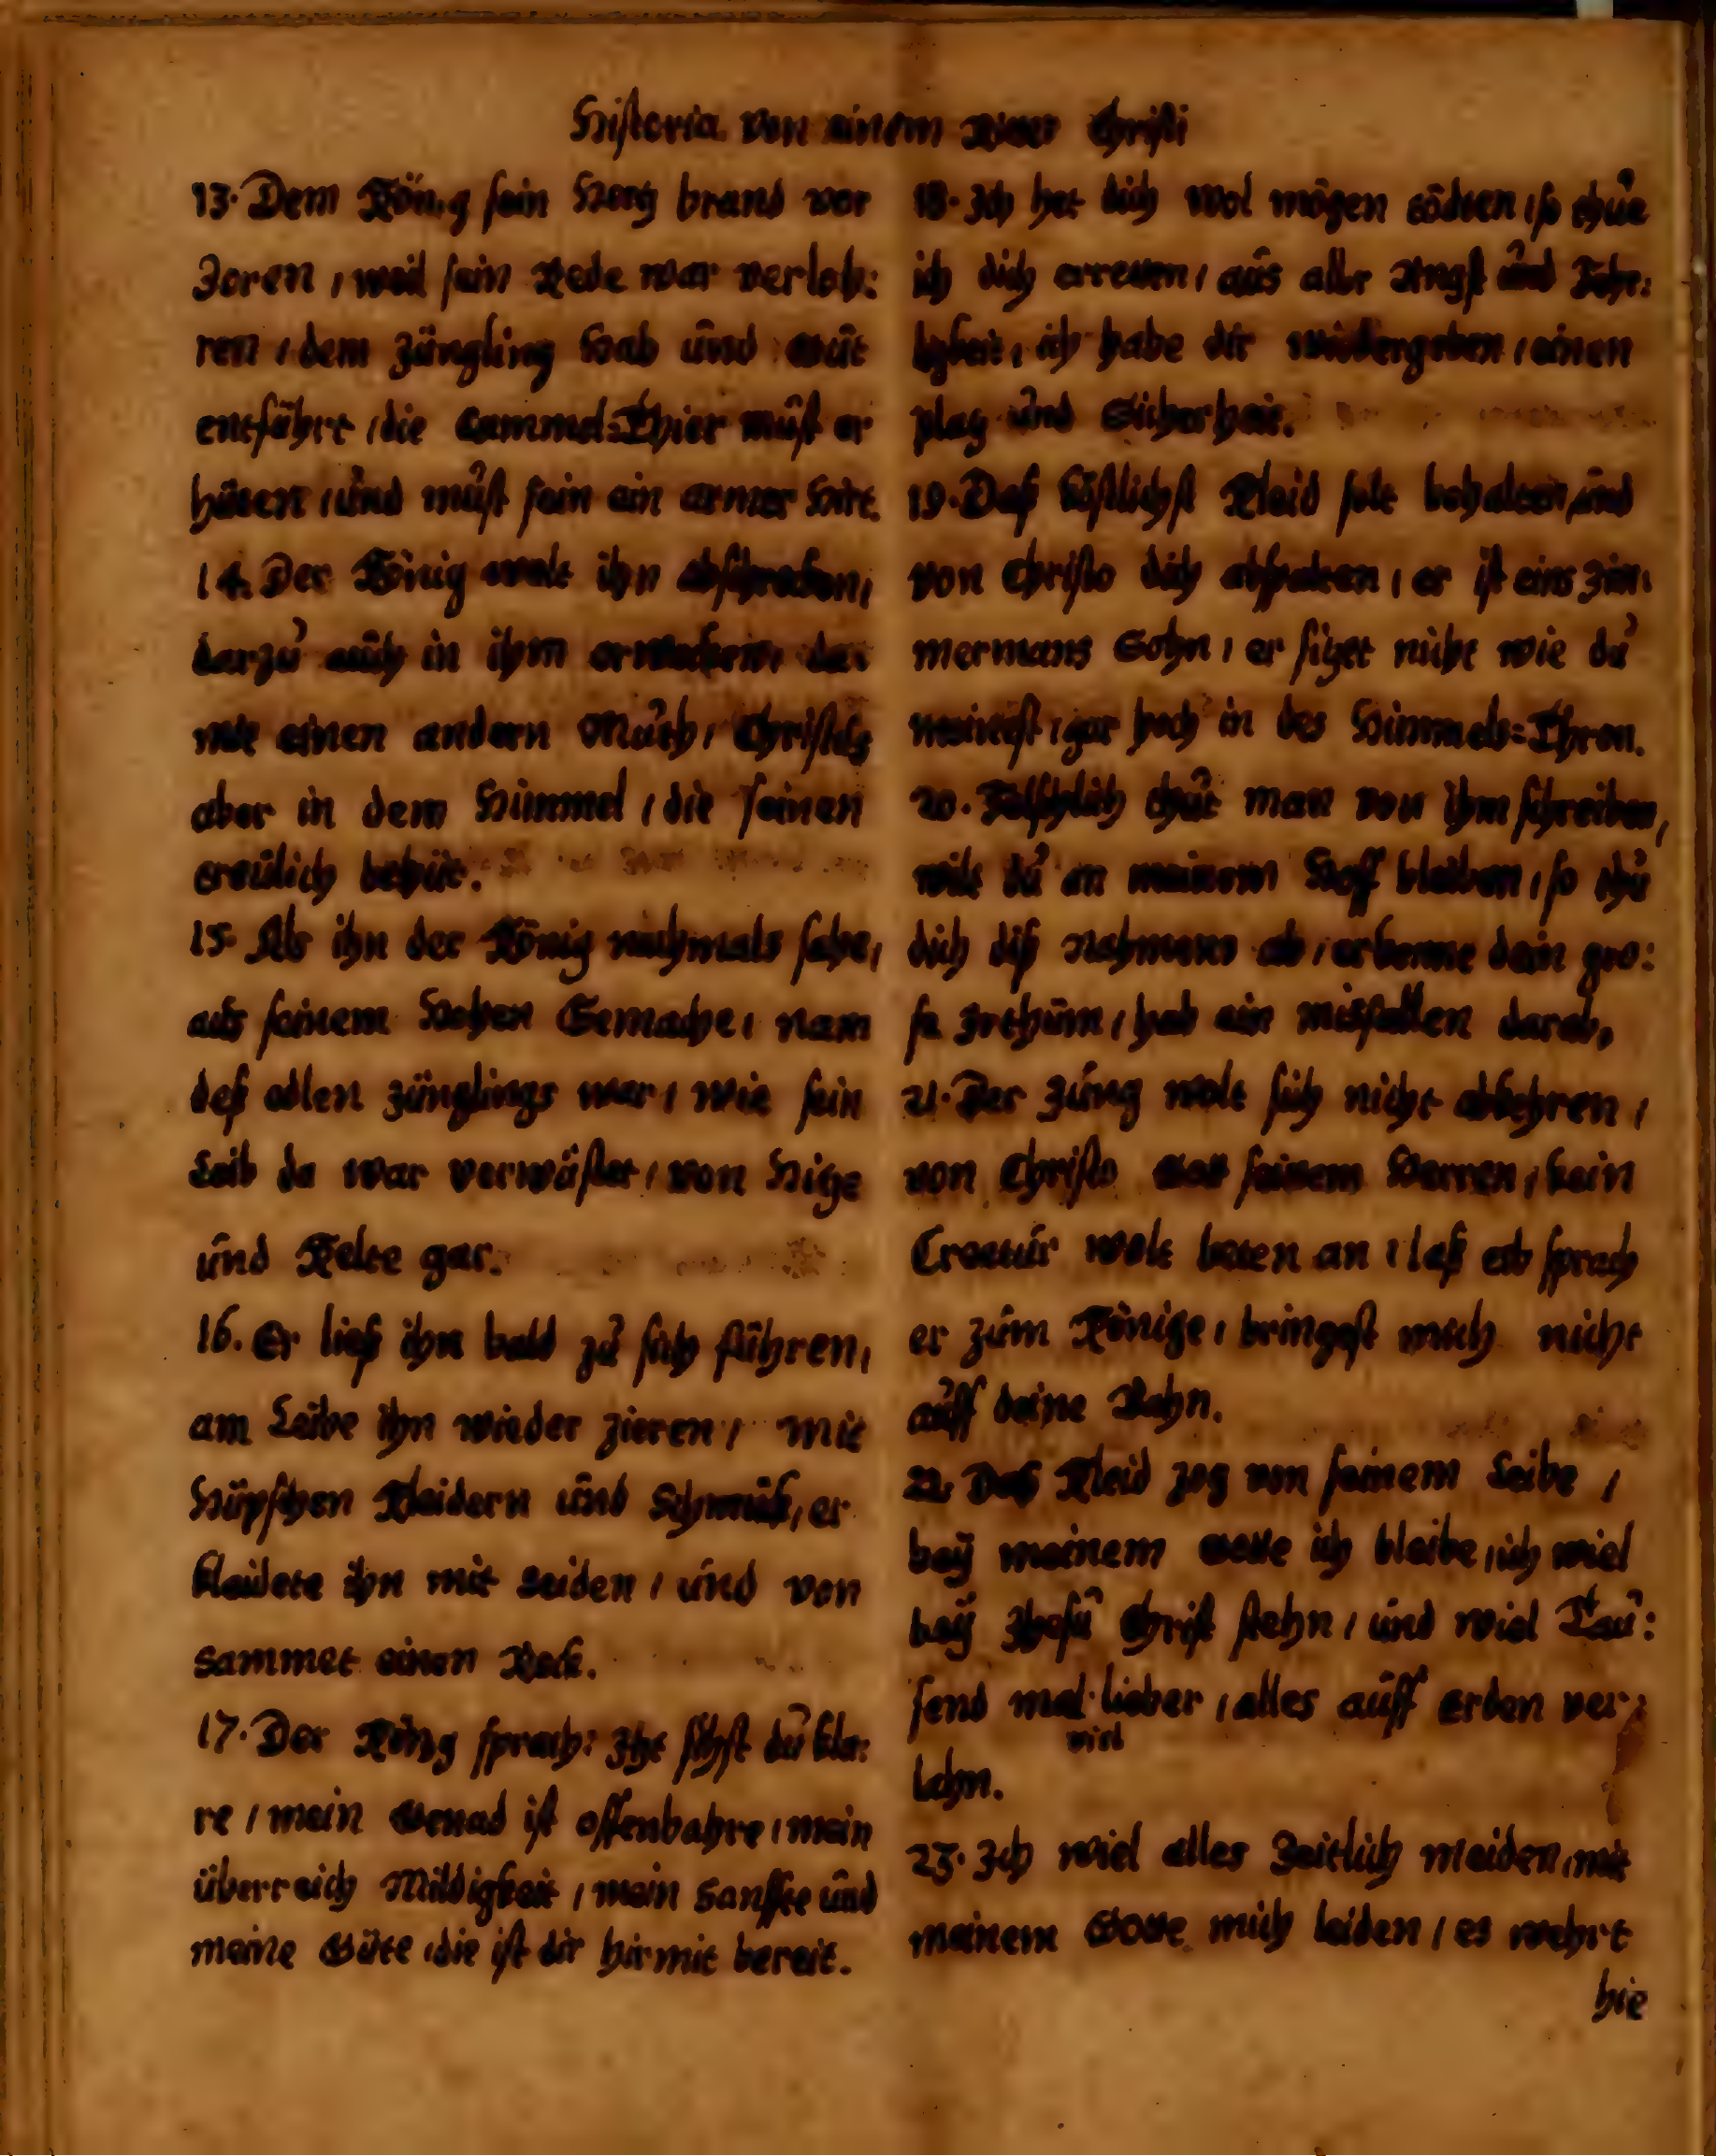 Historia von einem Riter Christi
13. Dem König sein Hertz brand vor
Zoren / weil sein Rede war verloh:
ren / dem Jüngling Hab und Gut
entführt / die Cammel-Thier must er
hüten / und must sein ein armer Hirt.
14. Der König wolt ihn abschrecken /
darzu auch in ihm erwecken / da:
mit einen andern Muth / Christus
aber in dem Himmel / die seinen
treulich behüt.
15. Als ihn der König nachmals sahe /
aus seinem Hohen Gemache / nam
deß edlen Jünglings war / wie sein
Leib da war verwüstet / von Hitze
und Kelte gar.
16. Er ließ ihn bald zu sich führen,
am Leibe ihn wieder zieren / mit
Hüpschen Kleidern und Schmuck, er
kleidete ihn mit Seiden / und von
Sammet einen Rock.
17. Der König sprach: Jtzt sihst du kla:
re / mein Genad ist offenbahre / mein
überreich Mildigkeit / mein Sanffte und
meine Güte / die ist dir hirmit bereit.
18. Jch het dich wol mögen tödten / so thue
ich dich erretten / aus aller Angst und Fehr:
ligkeit, ich habe dir widergeben / einen
platz und Sicherheit.
19. Daß köstlichst Kleid solt behalten / und
von Christo dich abspalten / er ist eins Zim:
mermans Sohn / er sitzet nicht wie du
meinest / gar hoch in des Himmels-Thron.
20. Fälschlich thut man von ihm schreiben,
wilt du an meinem Hoff bleiben / so thu
dich diß Nahmens ab / erkenne dein gro:
se Jrthum / hab ein misfallen darab,
21. Der Jüng wolt sich nicht abkehren /
von Christo Gott seinem Herren / kein
Creatur wolt beten an / laß ab sprach
er zum Könige / bringest mich nicht
auff deine Bahn.
22. Daß Kleid zog von seinem Leibe /
bey meinem Gotte ich bleibe / ich wiel
bey Jhesu Christ stehn / und wiel Tau:
send mal lieber / alles auff Erden ver:
viel
lahn.
23. Jch wiel alles Zeitlich meiden / mit
meinem Gotte mich leiden / es wehrt
hie